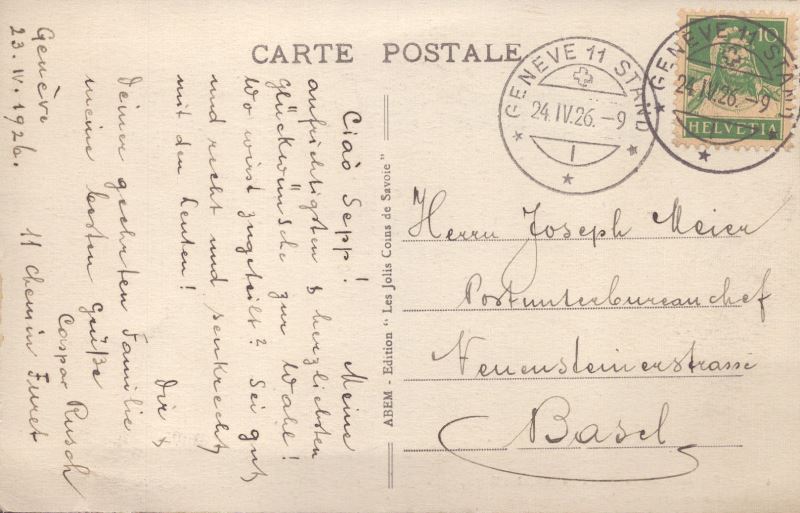 CARTE POSTALE
GENÈVE 11 STAND
24.IV.26.-9
1
GENÈVE 11 STAND
24.IV.26.-9
10
HELVETIA
Ciaò Sepp! Meine
aufrichtigsten & herzlichsten
Glückwünsche zur Wahl!
Wo wirst zugeteilt? Sei gut
und recht und senkrecht
mit den Leuten!
Dir &
Deiner geehrten Familie
meine besten Grüße
Caspar Rusch
11 Chemin Furet
Genève
23.IV.1926.
ABEM - Edition "Les Jolis Coins de Savoie"
Herrn Joseph Meier
Postunterbureauchef
Neuensteinerstrasse
Basel